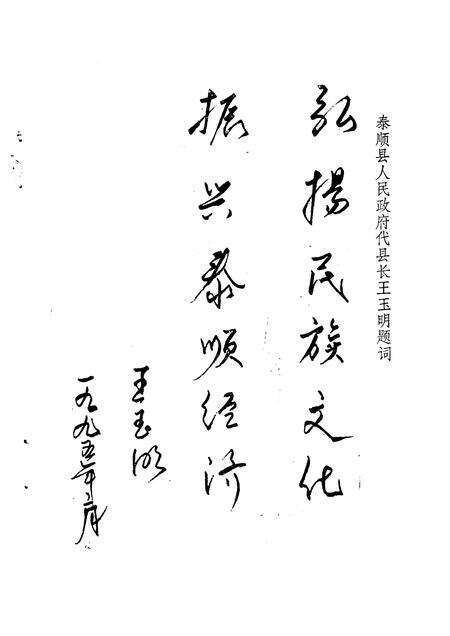 泰顺县人民政府代县长王玉明题词
弘扬民族文化
振兴泰顺经济
王玉明
一九九五年二月